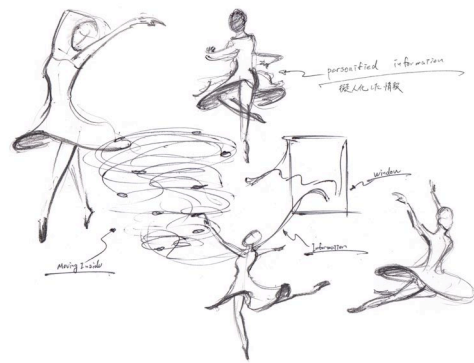 personified information
擬人化した情報
window
Information
Moving Inside